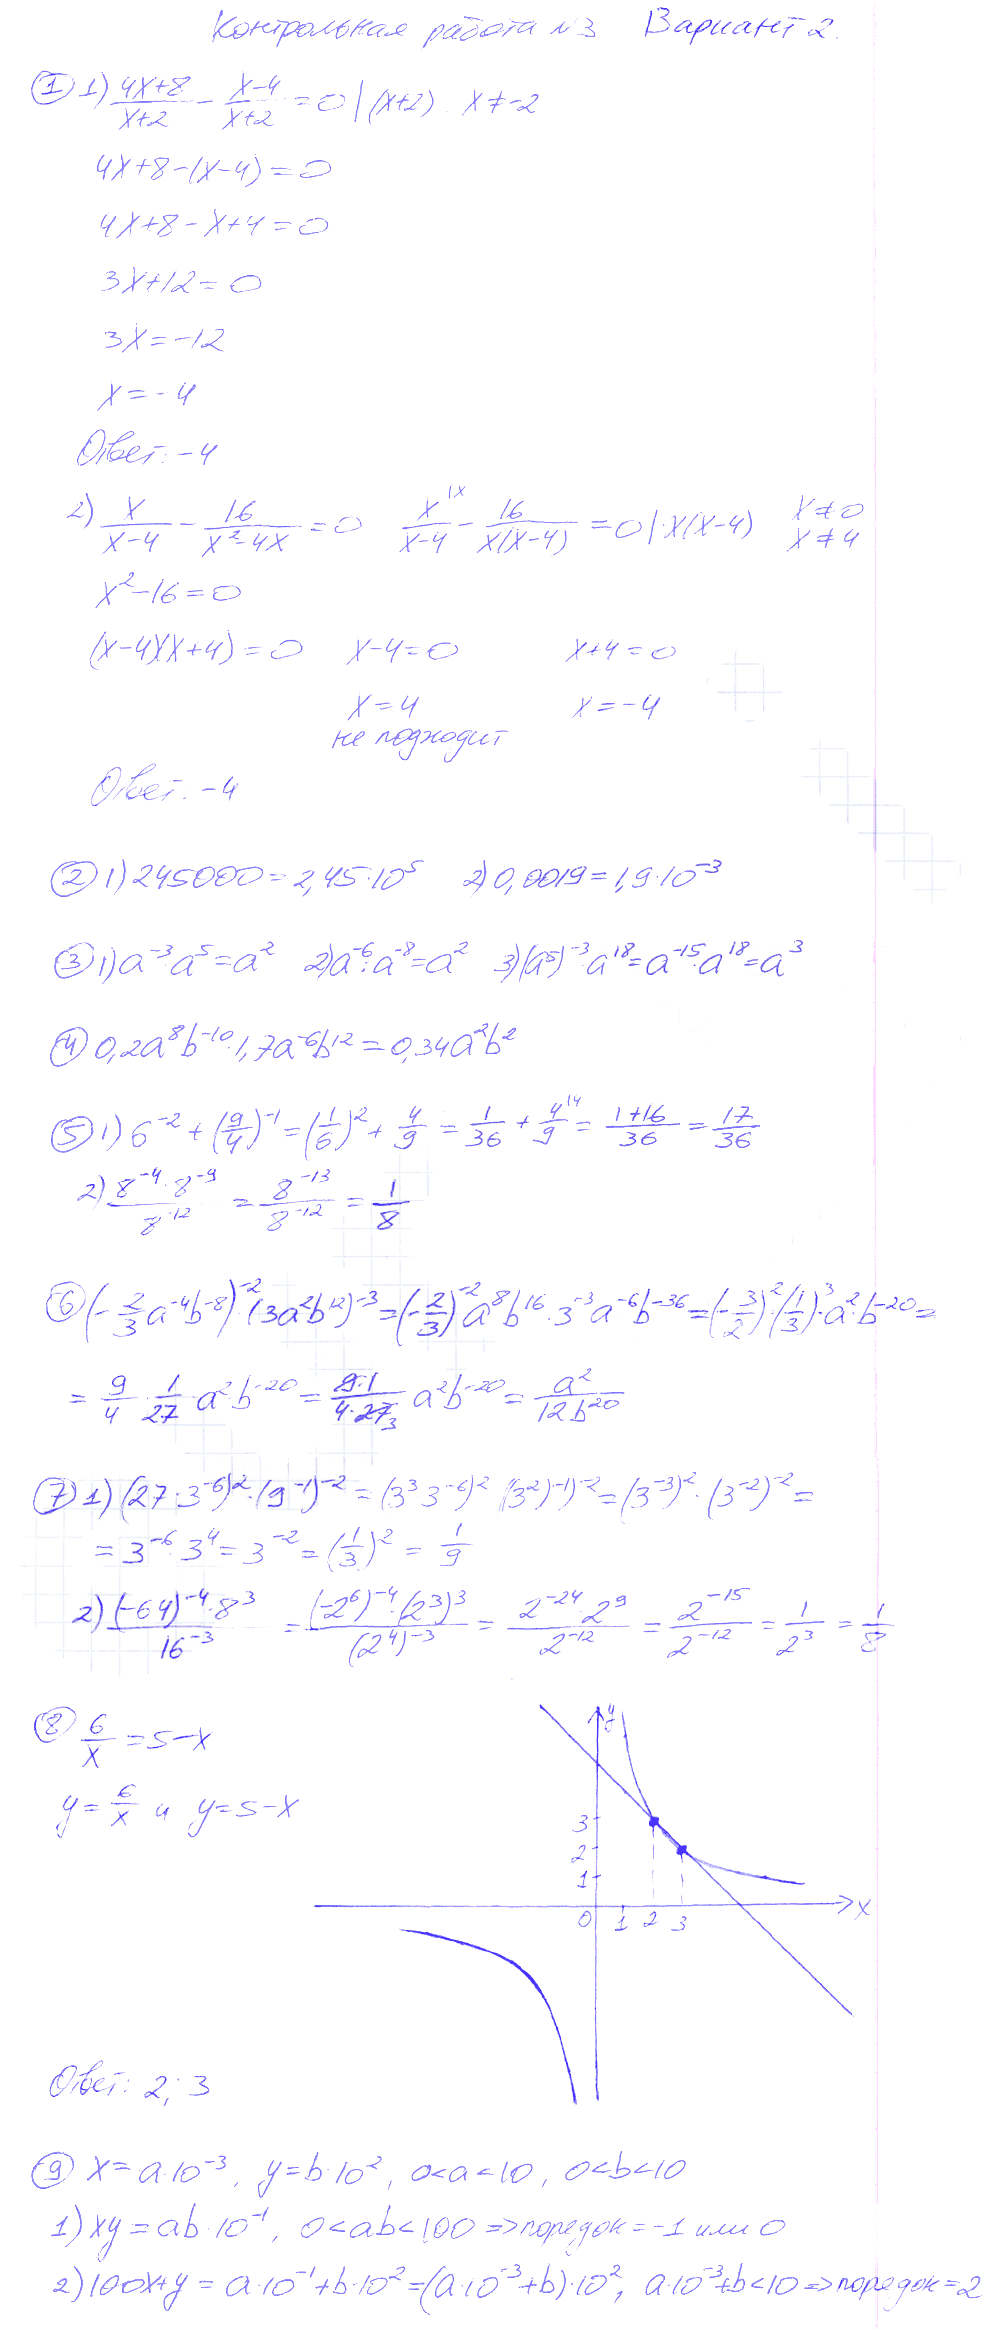 Контрольная работа №3 Вариант 2.
① 1) (4x+8)/(x+2) - (x-4)/(x+2) = 0 | (x+2) . x ≠ -2
4x+8-(x-4)=0
4x+8-x+4=0
3x+12=0
3x=-12
x=-4
Ответ: -4
2) x/(x-4) - 16/(x²-4x) = 0 x^{1x}/(x-4) - 16/(x(x-4)) = 0 | x(x-4) x≠0 x≠4
x²-16=0
(x-4)(x+4)=0 x-4=0 x+4=0
x=4 x=-4
не подходит
Ответ: -4
② 1) 245000=2,45·10⁵ 2) 0,0019=1,9·10⁻³
③ 1) a⁻³·a⁵=a² 2) a⁻⁶:a⁻⁸=a² 3) (a⁵)⁻³·a¹⁸=a⁻¹⁵·a¹⁸=a³
④ 0,2a⁸b⁻¹⁰·1,7a⁻⁶b¹²=0,34a²b²
⑤ 1) 6⁻²+(9/4)⁻¹=(1/6)²+4/9=1/36+4^{14}/9=(1+16)/36=17/36
2) (8⁻⁴·8⁻⁹)/8⁻¹² = 8⁻¹³/8⁻¹² = 1/8
⑥ (-2/3 a⁻⁴b⁻⁸)⁻²·(3a²b¹²)⁻³=(-2/3)⁻²a⁸b¹⁶·3⁻³a⁻⁶b⁻³⁶=(-3/2)²·(1/3)³·a²b⁻²⁰=
= 9/4 · 1/27 · a²·b⁻²⁰ = (9·1)/(4·27₃) a²b⁻²⁰ = a²/(12b²⁰)
⑦ 1) (27·3⁻⁶)²·(9⁻¹)⁻²=(3³·3⁻⁶)²·((3²)⁻¹)⁻²=(3⁻³)²·(3⁻²)⁻²=
=3⁻⁶·3⁴=3⁻²=(1/3)²=1/9
2) ((-64)⁻⁴·8³)/16⁻³ = ((-2⁶)⁻⁴·(2³)³)/(2⁴)⁻³ = (2⁻²⁴·2⁹)/2⁻¹² = 2⁻¹⁵/2⁻¹² = 1/2³ = 1/8
⑧ 6/x=5-x
y=6/x и y=5-x
y
3
2
1
0 1 2 3 x
Ответ: 2; 3
⑨ x=a·10⁻³, y=b·10², 0<a<10, 0<b<10
1) xy=ab·10⁻¹, 0<ab<100 => порядок=-1 или 0
2) 100x+y=a·10⁻¹+b·10²=(a·10⁻³+b)·10², a·10⁻³+b<10 => порядок=2